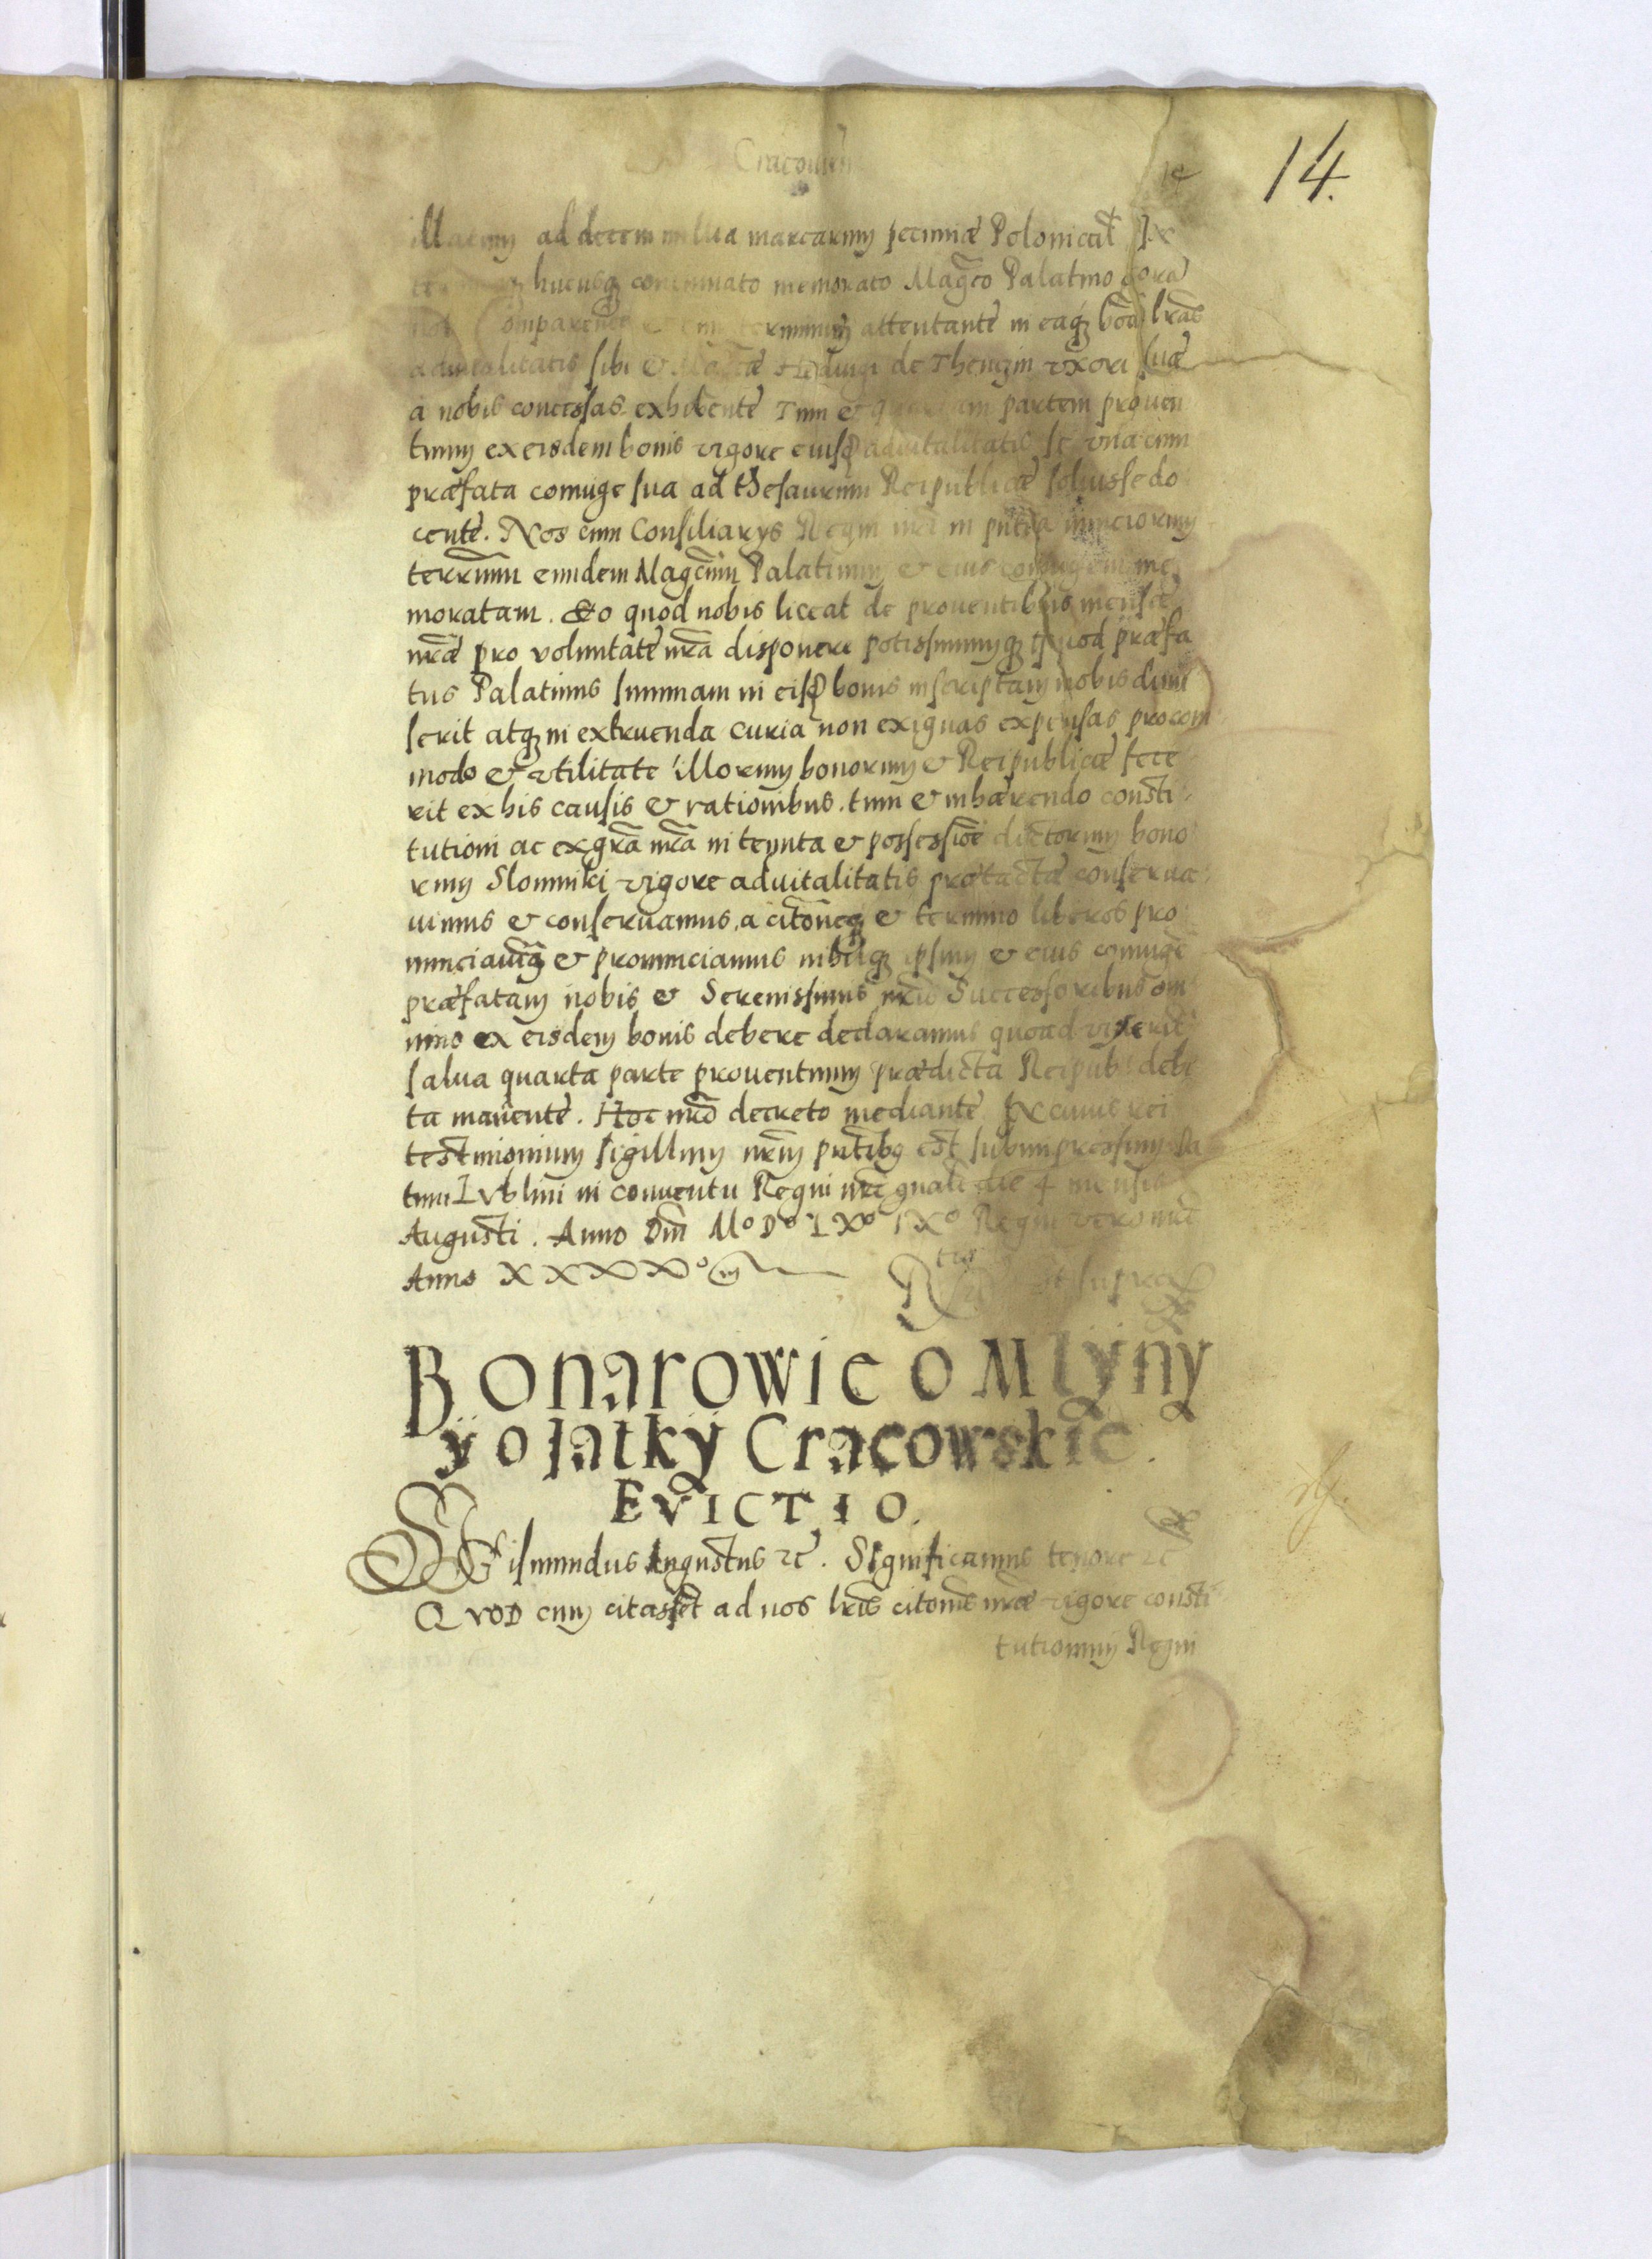 Cracovien
14.
illarum ad decem millia marcarum pecuniæ Polonical
hucusq; continuato memorato Magco Palatino corā
comparente terminum attentante in eaq; bona lr̄as
advitalitatis sibi & Hedvigi de Thenczin uxori suæ
à nobis concessas exhibente Tum & quartam partem proven
tuum ex eisdem bonis vigore eiusd advitalitatis se una cum
præfata coniuge sua ad thesaurum Reipublicæ solvisse do
cente. Nos cum Consiliarys Regni nri in pntia nunciorum
terrarum eundem Magcum Palatinum & eius coniugem me
moratam. Eo quod nobis liceat de proventibus mensæ
nr̄æ pro voluntate nr̄a disponere potissimumq; quod præfa
tus Palatinus summam in eisd bonis inscriptam nobis dimi
serit atq; in extruenda curia non exiguas expensas pro com
modo & utilitate illorum bonorum & Reipublicæ fece
rit ex his causis & rationibus. tum & inhærendo consti
tutioni ac ex gr̄a nr̄a in tenuta & possessioē dictorum bono
rum Slomniki vigore advitalitatis prætactæ conserva
vimus & conservamus, a citōneq; & termino liberos pro
nunciavimq; & pronunciamus nihilq; ipsum & eius coniugē
præfatam nobis & Serenissimis nris Successoribus om
nino ex eisdem bonis debere declaramus quoad vixerit
salva quarta parte proventuum prædicta Reipub: debi
ta manente. Hoc nrō decreto mediante. In cuius rei
testimonium sigillum nrūm pntibq est subimpressum Da
tum Lublini in conventu Regni nri gnali die 4 mensis
Augusti. Anno Dni Mº Dº LXº IXº Regni vero nri
Anno XXXXº
Rtio ut supra
Bonarowie o Mlÿnÿ
ÿ o Jatkÿ Cracowskie.
EVICTIO.
SGismundus Augustus &c. Significamus tenore &c
QVOD cum citasset ad nos lrīs citonis nr̄æ vigore consti
tutionum Regni